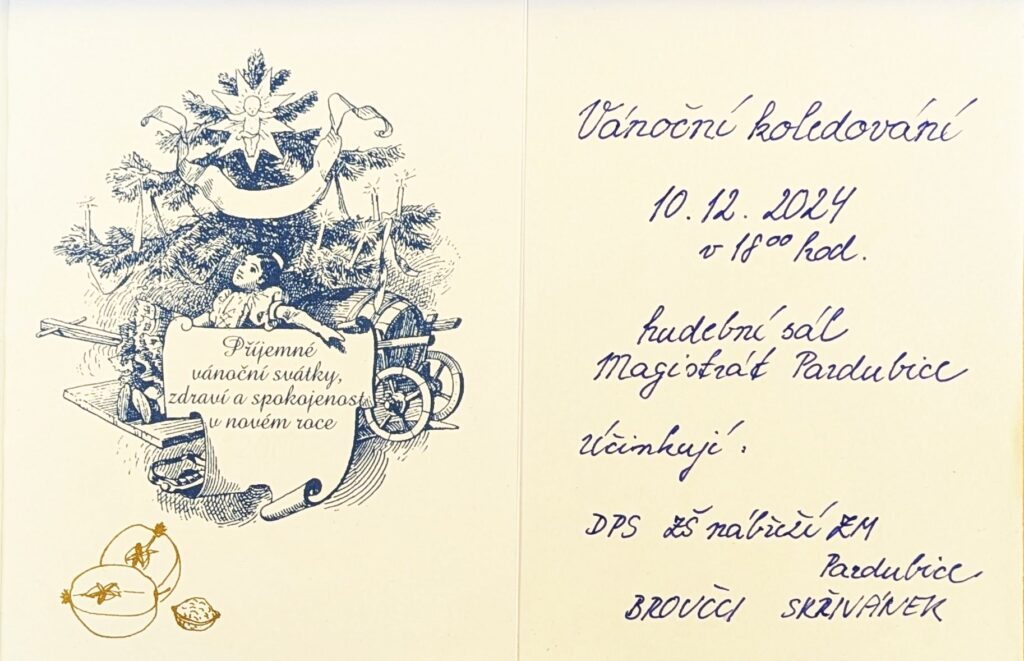 Příjemné
vánoční svátky,
zdraví a spokojenost
v novém roce
Vánoční koledování
10. 12. 2024
v 18⁰⁰ hod.
hudební sál
Magistrát Pardubice
Účinkují:
DPS ZŠ nábřeží ZM
Pardubice
BROUČCI SKŘIVÁNEK